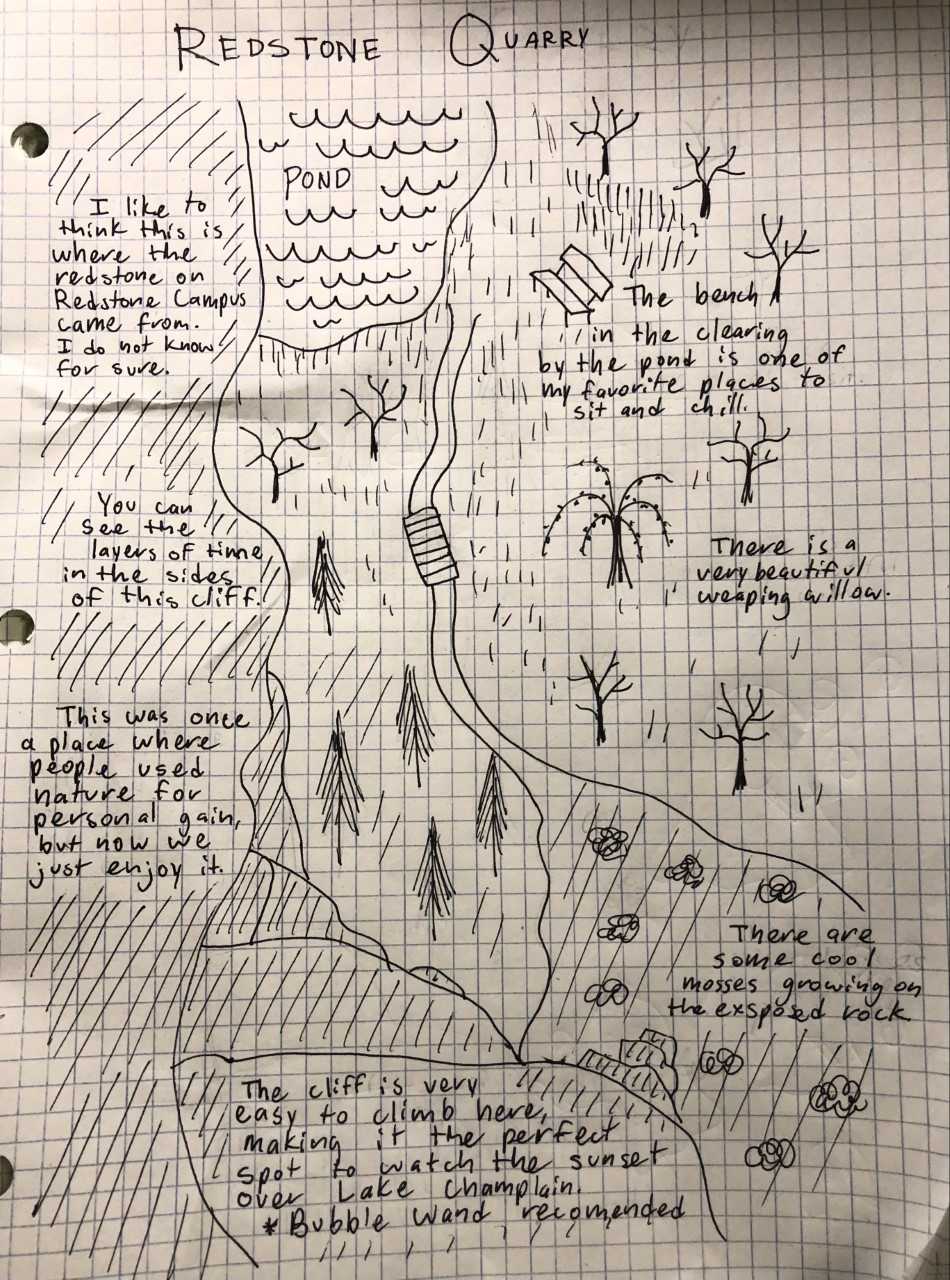 REDSTONE QUARRY
POND
I like to
think this is
where the
redstone on
Redstone Campus
came from.
I do not know
for sure.
The bench
in the clearing
by the pond is one of
my favorite places to
sit and chill.
You can
see the
layers of time
in the sides
of this cliff.
There is a
very beautiful
weaping willow.
This was once
a place where
people used
nature for
personal gain,
but now we
just enjoy it.
There are
some cool
mosses growing on
the exsposed rock
The cliff is very
easy to climb here,
making it the perfect
spot to watch the sunset
over Lake Champlain.
*Bubble wand recomended